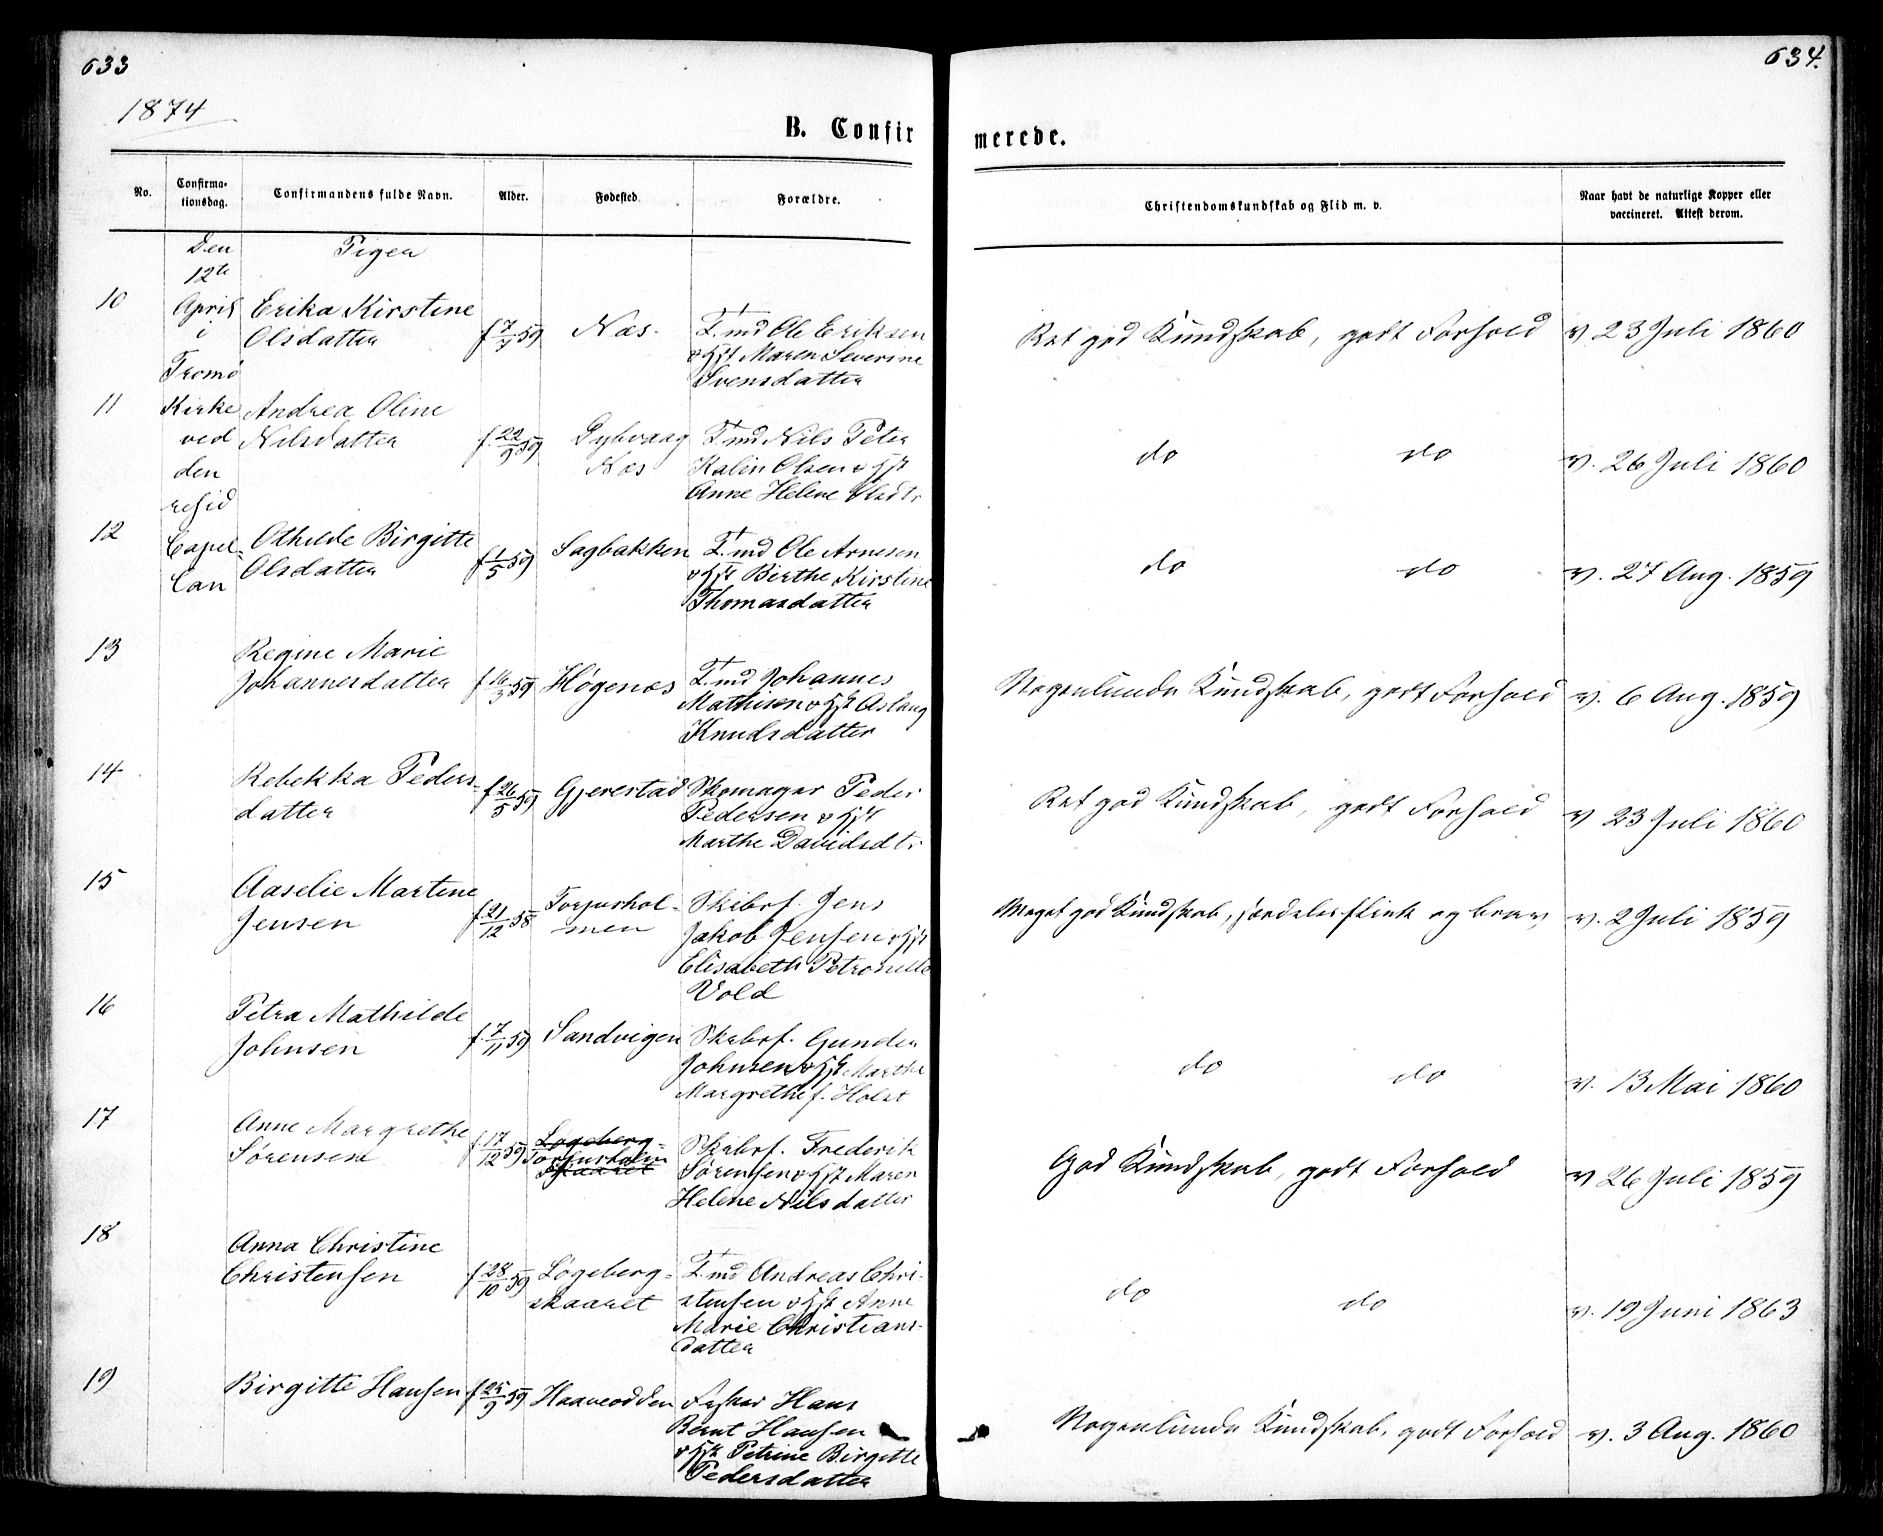 633
634.
1874
B. Confir
merede.
No.
Confirma-
tionsdag.
Confirmandens fulde Navn.
Alder.
Fødested.
Forældre.
Christendomskundskab og Flid m. v.
Naar havt de naturlige Kopper eller
vaccineret. Attest derom.
Den
12te
April
i
Tromø
Kirke
ved
den
resid
Capel-
lan
Piger
10
Erika Kirstine
Olsdatter
f. 7/7 59
Næs.
T. md Ole Eriksen
o Hst Maren Severine
Svensdatter
Ret god Kundskab, godt Forhold
v 23 Juli 1860
11
Andrea Oline
Nilsdatter
f. 22/9 59
Dybvaag
Næs
T. md Nils Peter
Kalin Olsen o Hst
Anne Helene Olsdtr
do do
v. 26 Juli 1860
12
Othilde Birgitte
Olsdatter
f 1/5 59
Sagbakken
T. md Ole Arnesen
o Hst Birthe Kirstine
Thomasdatter
do do
v. 27 Aug. 1859
13
Regine Marie
Johannesdatter
f 16/3 59
Høgenæs
T. md Johannes
Mathisen o Hst Aslaug
Knudsdatter
Nogenlunde Kundskab, godt Forhold
v. 6 Aug. 1859
14
Rebekka Peders-
datter
f 26/5 59
Gjerestad
Skomager Peder
Pedersen o Hst
Marthe Davidsdtr
Ret god Kundskab, godt Forhold
v 23 Juli 1860
15
Aaselie Martine
Jensen
f. 21/12 58
Torjushol-
men
Skibsf. Jens
Jakob Jensen o Hst
Elisabeth Petronelle
Vold
Meget god Kundskab, særdeles flink og brav,
v. 2 Juli 1859
16
Petra Mathilde
Johnsen
f. 7/11 59
Sandvigen
Skibsf. Gunder
Johnsen o Hst Marthe
Margrethe f. Holst
do do
v. 13 Mai 1860
17
Anne Margrethe
Sørensen
f. 17/12 59
Løgeberg-
Torjusholm
skaaret
Skibsf. Frederik
Sørensen o Hst Maren
Helene Nilsdatter
God Kundskab, godt Forhold
v 26 Juli 1859
18
Anna Christine
Christensen
f. 28/10 59
Løgeberg-
skaaret
T. md Andreas Chri-
stensen o Hst Anne
Marie Christians-
datter
do do
v. 19 Juni 1863
19
Birgitte Hansen
f 25/9 59
Haaveodden
Fisker Hans
Bernt Hansen
o Hst Petrine Birgitte
Pedersdatter
Nogenlunde Kundskab, godt Forhold
v. 3 Aug. 1860